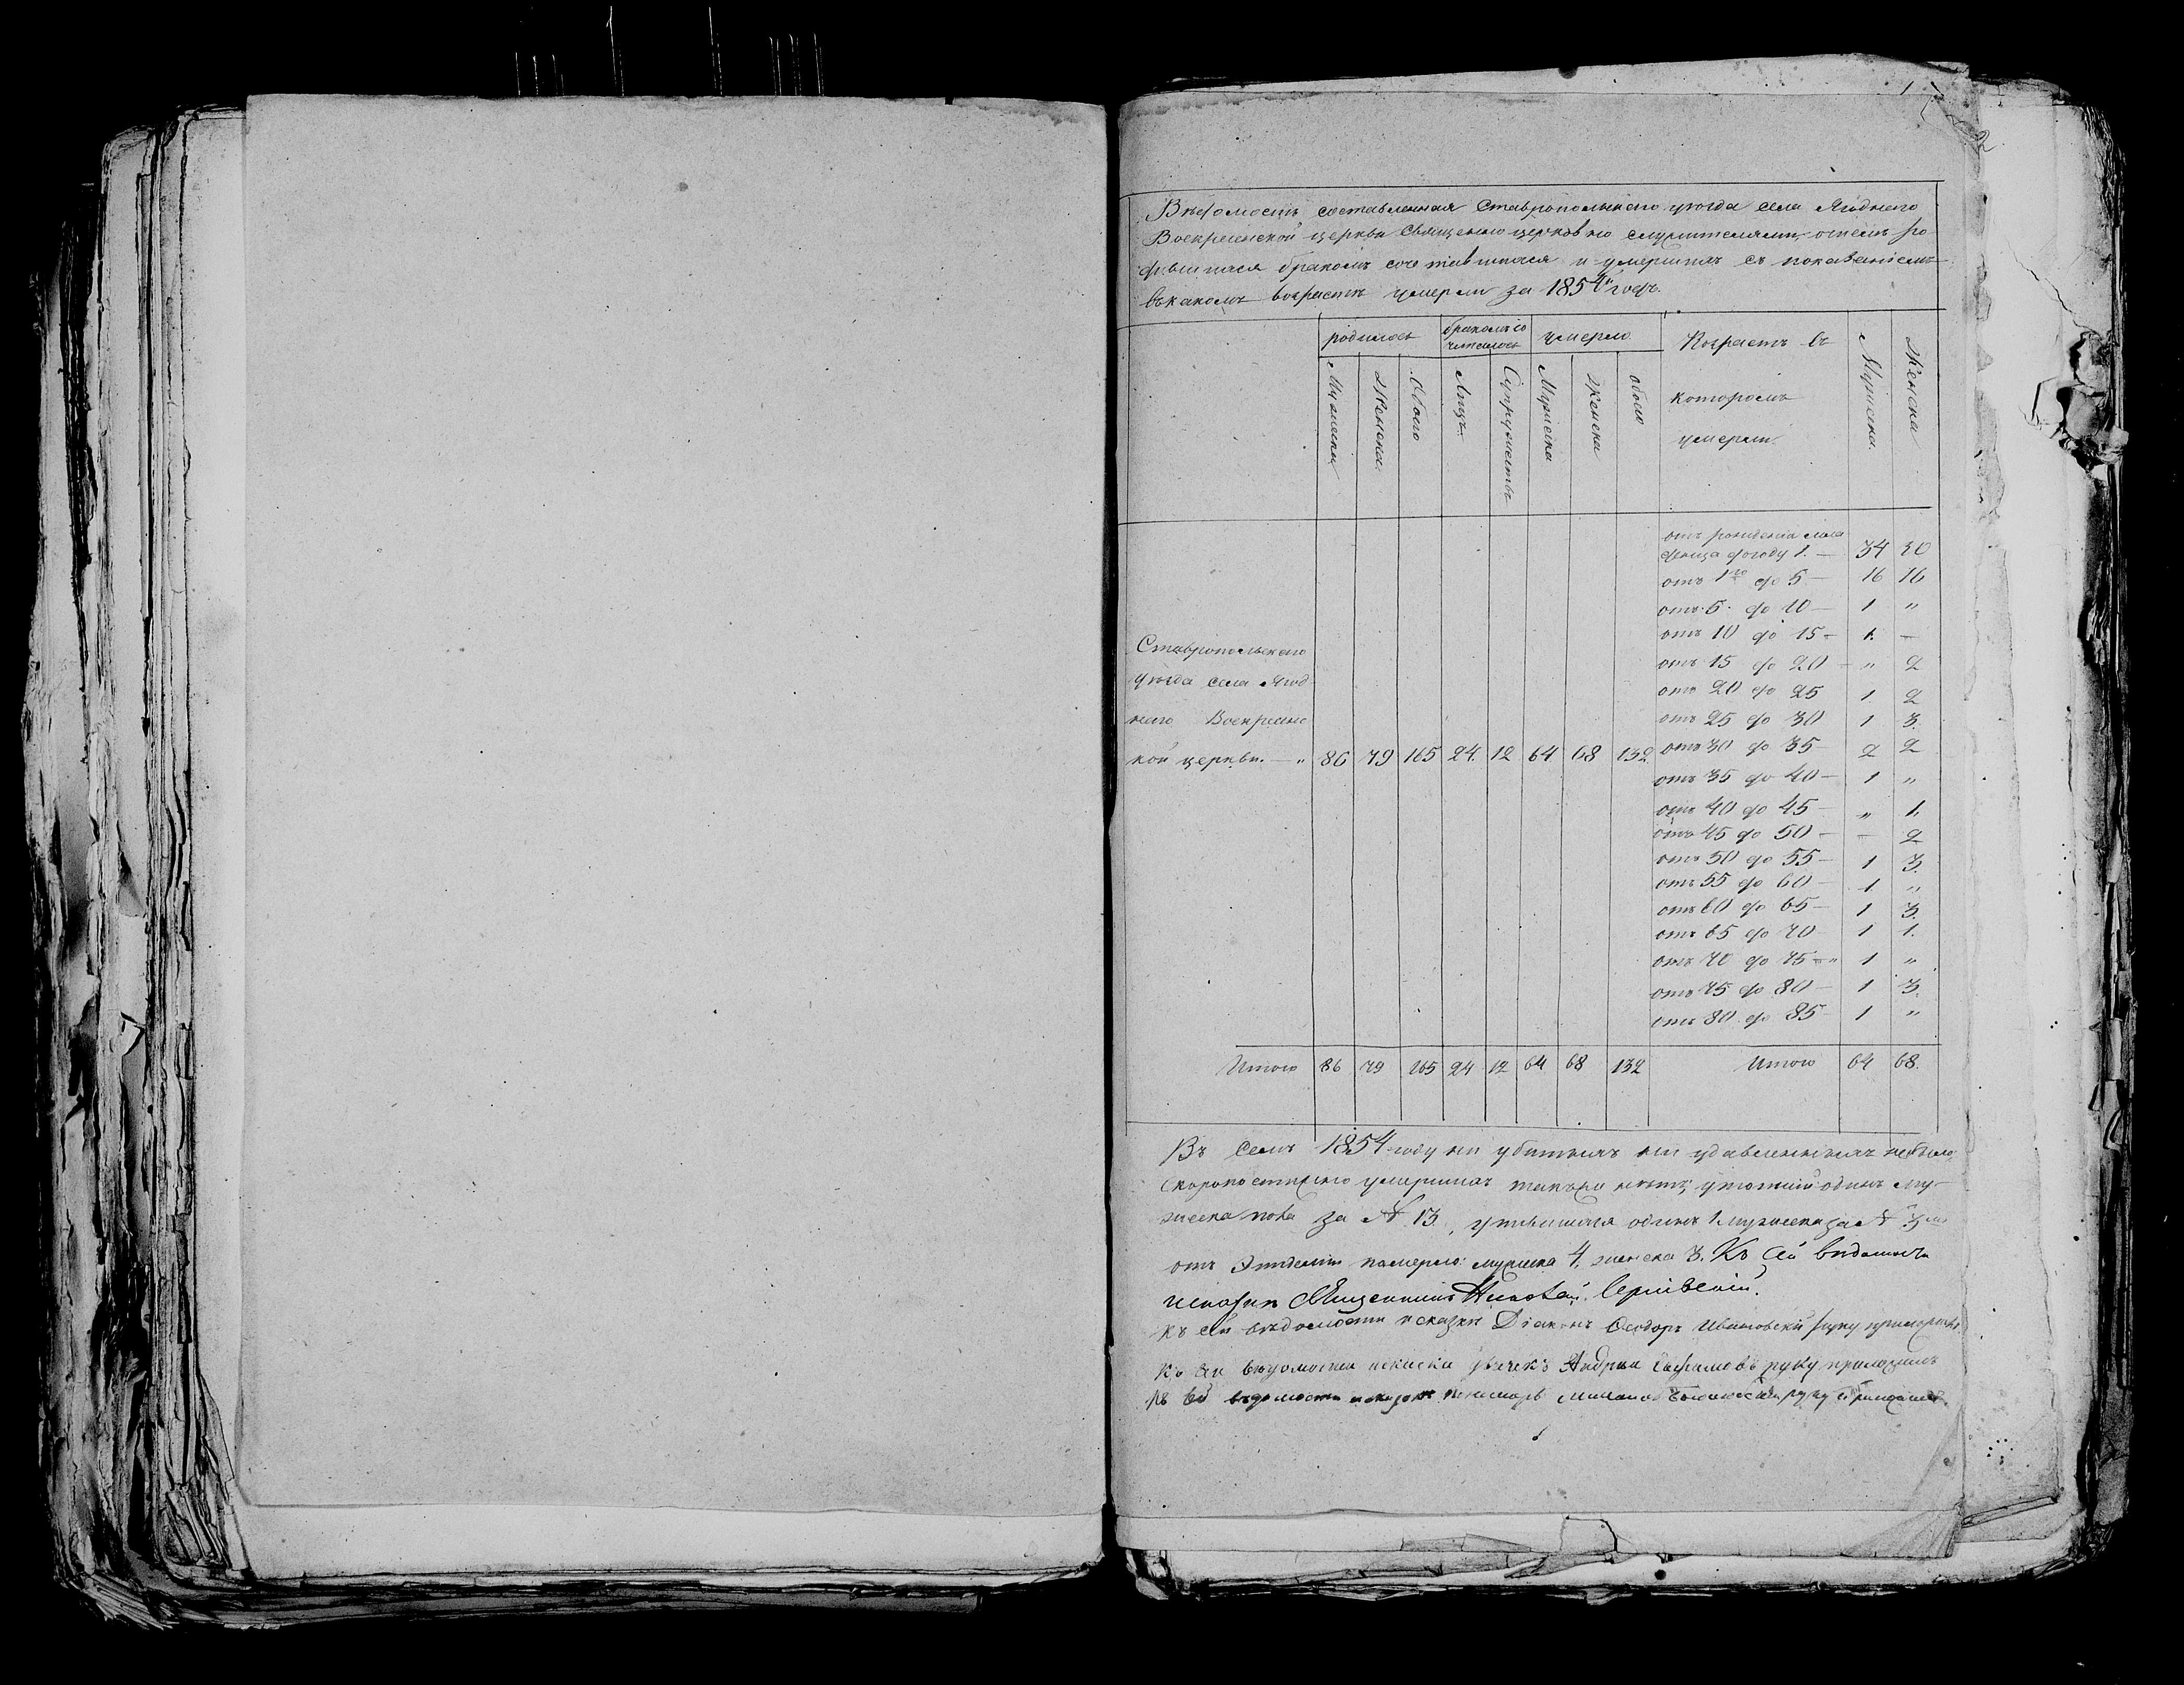 1
2
Вѣдомость составленная Ставропольскаго уѣзда села Ягоднаго
Воскресенской церкви Священно церковно служителями, о всѣхъ ро
дившихся бракомъ сочетавшихся и умершихъ съ показаніемъ
въ какомъ возрастѣ умерли за 1854й годъ.
родилось
бракомъ со
четалось
умерло
Возрастъ въ
которомъ
умерли
Мужеска
Женска
Мужеска
Женска
Обоего
Лицъ
Супружествъ
Мужеска
Женска
обоего
отъ рожденія мла
денца до году 1. — 34 30
отъ 1го до 5 — 16 16
отъ 5 до 10 — 1 "
отъ 10 до 15 — 1. —
отъ 15 до 20 — " 2
отъ 20 до 25 1 2
отъ 25 до 30 1 3.
отъ 30 до 35 — 2 2
отъ 35 до 40 — 1 "
отъ 40 до 45 — " 1.
отъ 45 до 50 — — 2
отъ 50 до 55 — 1 3.
отъ 55 до 60 — 1 "
отъ 60 до 65 — 1 3.
отъ 65 до 70 1 1.
отъ 70 до 75 — " 1 "
отъ 75 до 80 — 1 3.
отъ 80 до 85 — 1 "
Ставропольскаго
уѣзда села Ягод
наго Воскресенс
кой церкви. — " 86 79 165 24. 12 64 68 132
Итого 86 79 165 24 12 64 68 132 Итого 64 68.
Въ семъ 1854 году ни убитыхъ ни удавленныхъ не было,
скоропостижно умершихъ также нѣтъ; утопшій одинъ му-
жеска пола за № 13, одинъ 1. мужеска за № 3
отъ Эпидеміи померло: мужеска 4. женска 3. Къ сей вѣдомости
Священникъ Николай Сергіевскій.
Къ сей вѣдомости Діаконъ Ѳеодоръ Ивановскій руку приложилъ
Къ сей вѣдомости Андрей руку приложилъ
Къ сей вѣдомости пономарь руку приложилъ.